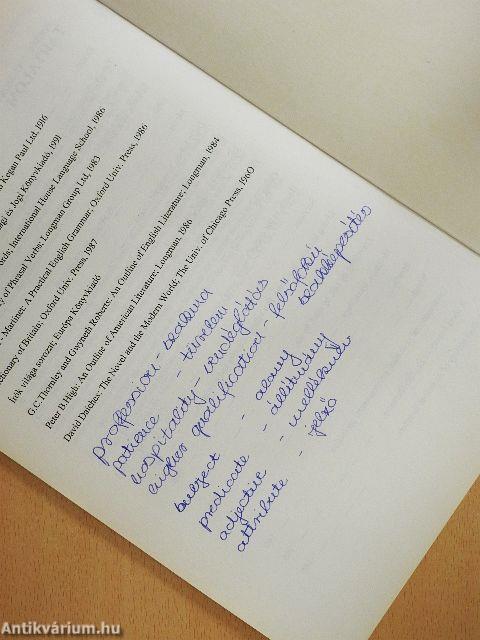 Kegan Paul Ltd, 1916
és Jogi Könyvkiadó, 1991
International House Language School, 1986
of Phrasal Verbs; Longman Group Ltd, 1983
Martinet: A Practical English Grammar; Oxford Univ. Press, 1986
of Britain; Oxford Univ. Press, 1987
világa sorozat; Európa Könyvkiadó
G.C.Thornley and Gwyneth Roberts: An Outline of English Literature; Longman, 1984
Peter B.High: An Outline of American Literature; Longman, 1986
David Daiches: The Novel and the Modern World; The Univ. of Chicago Press, 1960
proffession - szakma
patience - türelem
hospitality - vendéglátás
higher qualification - felsőfokú szakképesítés
subject - alany
predicate - állítmány
adjective - melléknév
attribute - jelző
Antikvárium.hu